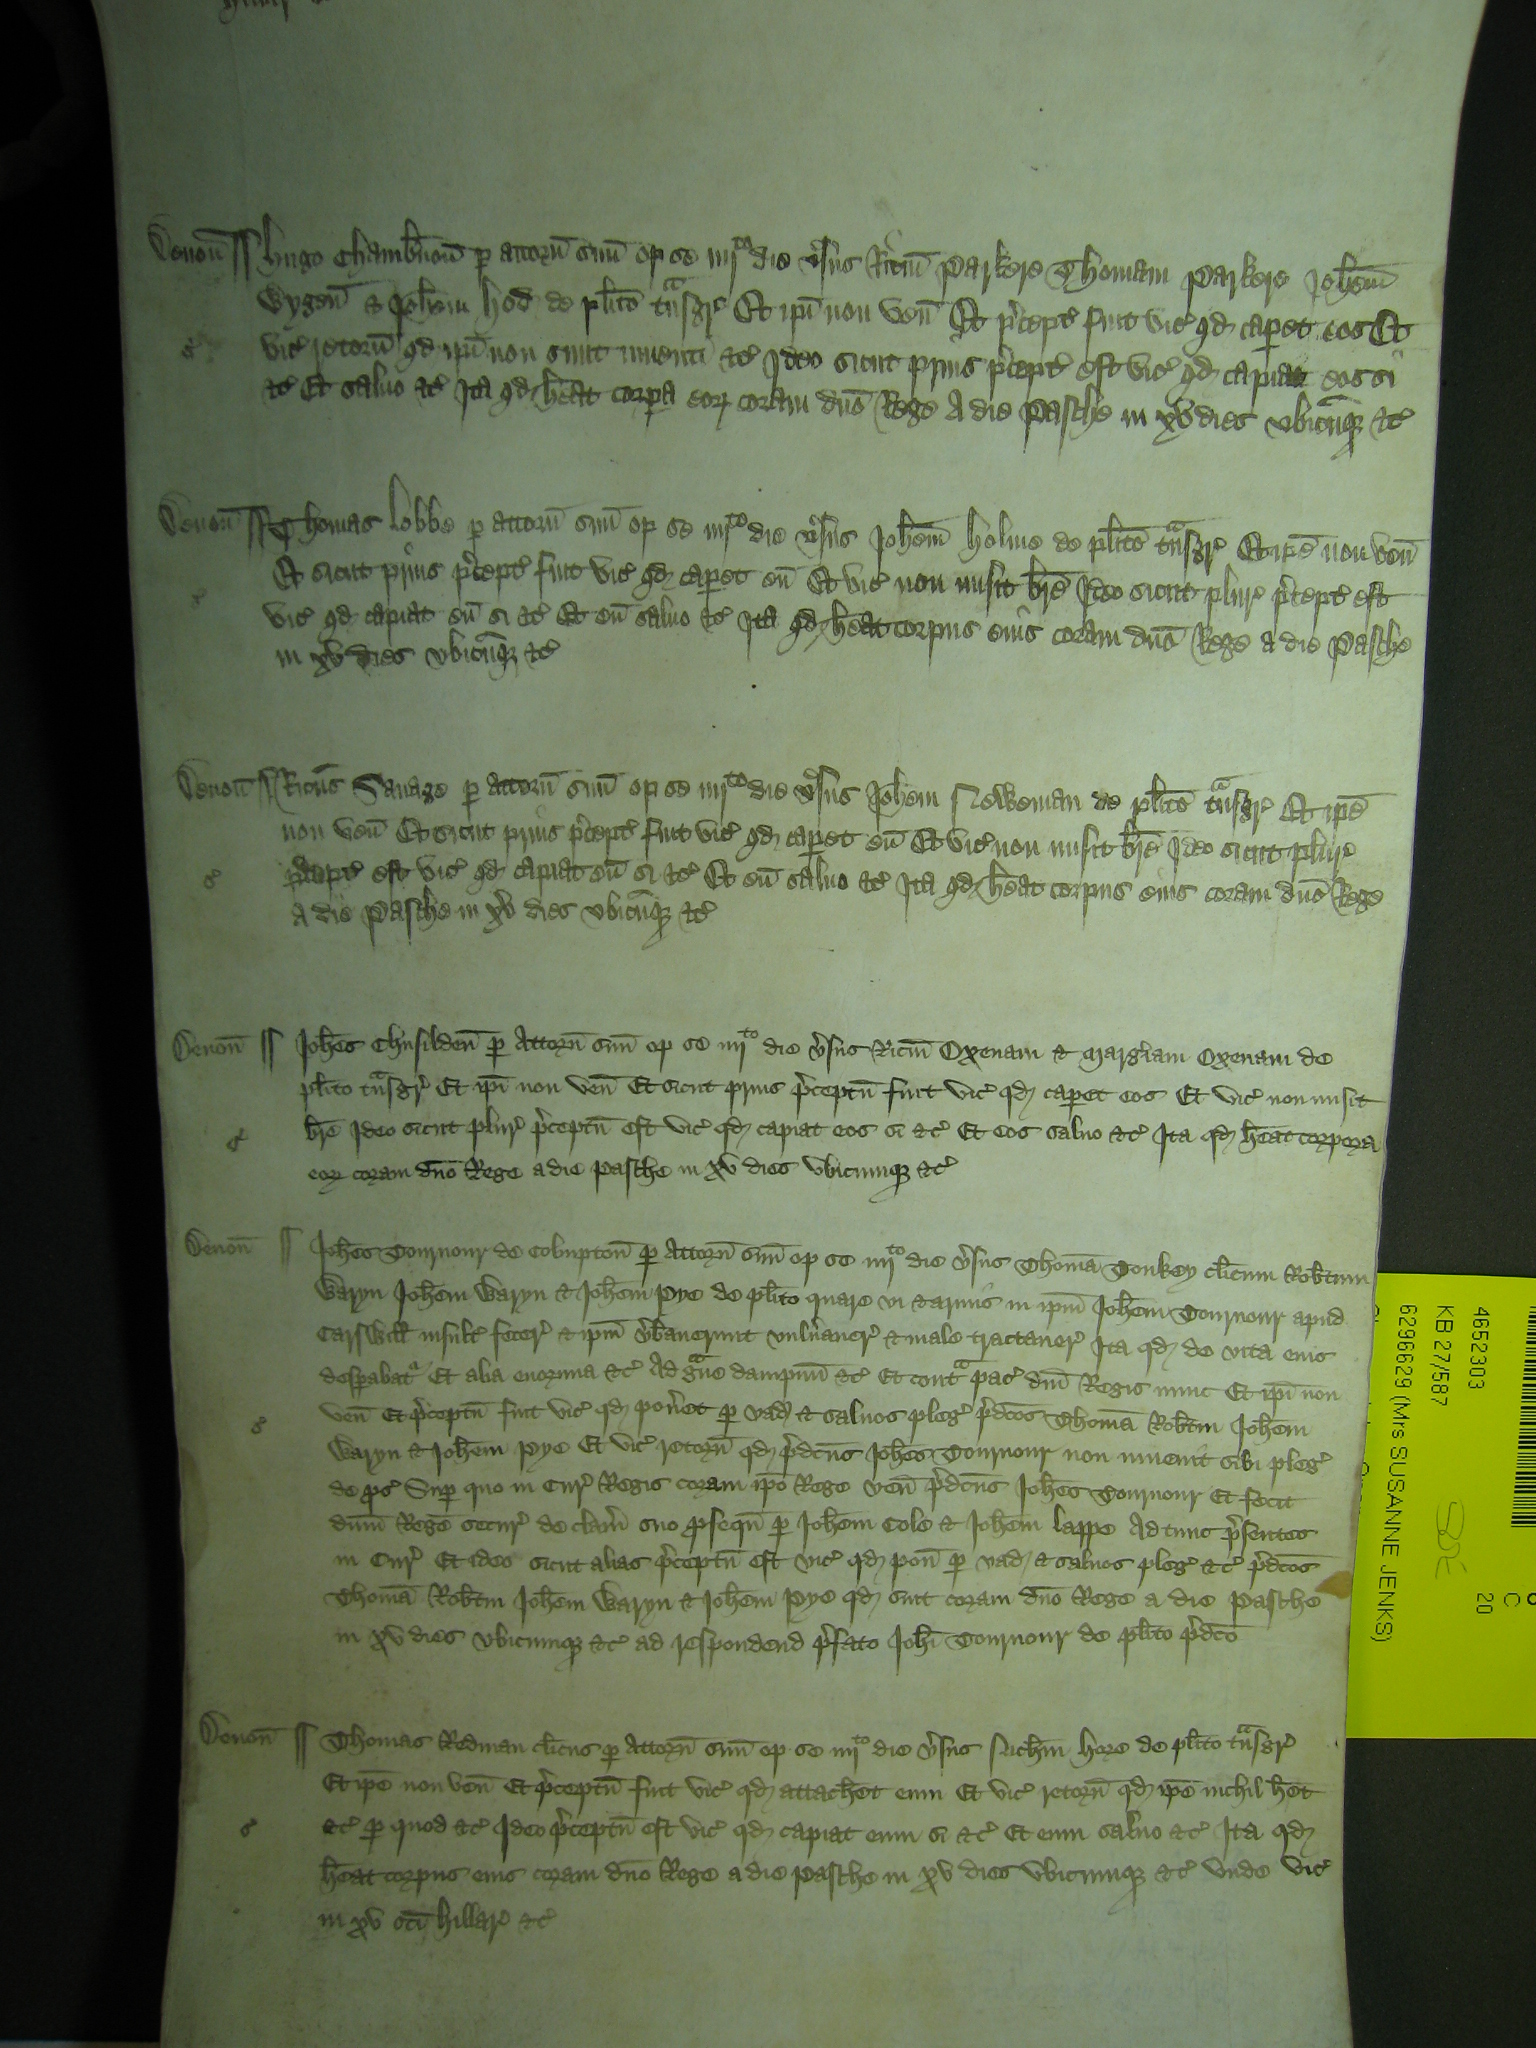 Devon̄ Hugo Chamb̄non̄ p attorn̄ suū op se iiijto die v̉sus Ric̄m Parkere Thomam Parkere Joh̄em
Wygen̄ & Joh̄em Hod de pl̄ito tᵃnsgr̉ Et ip̄i non ven̄ Et p̉cept̉ fuit vic̉ qd cap̱et eos Et
vic̉ retorn̄ qd ip̄i non sunt inuenti &c̉ Ideo sicut prius p̉cept̉ est vic̉ qd capiat eos si
&c̉ Et saluo &c̉ Ita qd h̄eat corp̱a eoꝝ coram dn̄o Rege a die Pasche in xv dies vbicūqꝫ &c̉
Devon̄ Thomas Lobbe p attorn̄ suū op se iiijto die v̉sus Joh̄em Holme de pl̄ito tᵃnsgr̉ Et ip̄e non ven̄
Et sicut prius p̉cept̉ fuit vic̉ qd cap̱et eū Et vic̉ non misit br̄e Ideo sicut plur̉ p̉cept̉ est
vic̉ qd capiat eū si &c̉ Et eū saluo &c̉ Ita qd h̄eat corpus eius coram dn̄o Rege a die Pasche
in xv dies vbicūqꝫ &c̉
Devon̄ Ric̄us Sauage p attorn̄ suū op se iiijto die v̉sus Joh̄em Neweman de pl̄ito tᵃnsgr̉ Et ip̄e
non ven̄ Et sicut prius p̉cept̉ fuit vic̉ qd cap̱et eū Et vic̉ non misit br̄e Ideo sicut plur̉
p̉cept̉ est vic̉ qd capiat eū si &c̉ Et eū saluo &c̉ Ita qd h̄eat corpus eius coram dn̄o Rege
a die Pasche in xv dies vbicūqꝫ &c̉
Devon̄ Joh̄es Chusilden̄ p Attorn̄ suū op se iiijto die v̉sus Ric̄m Oxenam & Marg̉iam Oxenam de
pl̄ito tᵃnsgr̉ Et ip̄i non ven̄ Et sicut prius p̉ceptū fuit vic̉ qd cap̱et eos Et vic̉ non misit
br̄e Ideo sicut plur̉ p̉ceptū est vic̉ qd capiat eos si &c̉ Et eos saluo &c̉ Ita qd h̄eat corpora
eoꝝ coram dn̄o Rege a die Pasche in xv dies vbicumqꝫ &c̉
Devon̄ Joh̄es Tournour de Colmpton̄ p Attorn̄ suū op se iiijto die v̉sus Thomā Tonkey cl̄icum Rob̄tum
Waryn Joh̄em Waryn & Joh̄em Pye de pl̄ito quare vi & armis in ip̄m Joh̄em Tournour apud
Carswill insult̉ fecer̉ & ip̄m v̉b̉auerunt vuln̉auer̉ & male tractauer̉ Ita qd de vita eius
desp̱abat̉ Et alia enormia &c̉ Ad gᵃue dampnū &c̉ Et contᵃ pac̉ dn̄i Regis nunc Et ip̄i non
ven̄ Et p̉ceptū fuit vic̉ qd pon̉et p vad̉ & saluos pleg̉ p̉dc̄os Thomā Rob̄tm Joh̄em
Waryn & Joh̄em Pye Et vic̉ retorn̄ qd p̉dc̄us Joh̄es Tournour non inuenit sibi pleg̉
de ꝓs̉ Sup̱ quo in Cur̉ Regis coram ip̄o Rege ven̄ p̉dc̄us Joh̄es Tournour Et fecit
dn̄m Regē secur̉ de clam̄ suo ꝓsequn̄ p Joh̄em Cole & Joh̄em Lappe Adtunc p̉sentes
in Cur̉ Et ideo sicut alias p̉ceptū est vic̉ qd pon̄ p vad̉ & saluos pleg̉ &c̉ p̉dc̄os
Thomā Rob̄tm Joh̄em Waryn & Joh̄em Pye qd sint coram dn̄o Rege a die Pasche
in xv dies vbicumqꝫ &c̉ ad respondend p̉fato Joh̄i Tournour de pl̄ito p̉dc̄o
Devon̄ Thomas Redman cl̄icus p Attorn̄ suū op se iiijto die v̉sus Mich̄m Hore de pl̄ito tᵃnsgr̉
Et ip̄e non ven̄ Et p̉ceptū fuit vic̉ qd attach̄et eum Et vic̉ retorn̄ qd ip̄e nichil h̄et
&c̉ p quod &c̉ Ideo p̉ceptū est vic̉ qd capiat eum si &c̉ Et eum saluo &c̉ Ita qd
h̄eat corpus eius coram dn̄o Rege a die Pasche in xv dies vbicumqꝫ &c̉ vnde vic̉
in xv sc̄i Hillar̉ &c̉
4652303
KB 27/587
6296629 (Mrs SUSANNE JENKS)
C
20